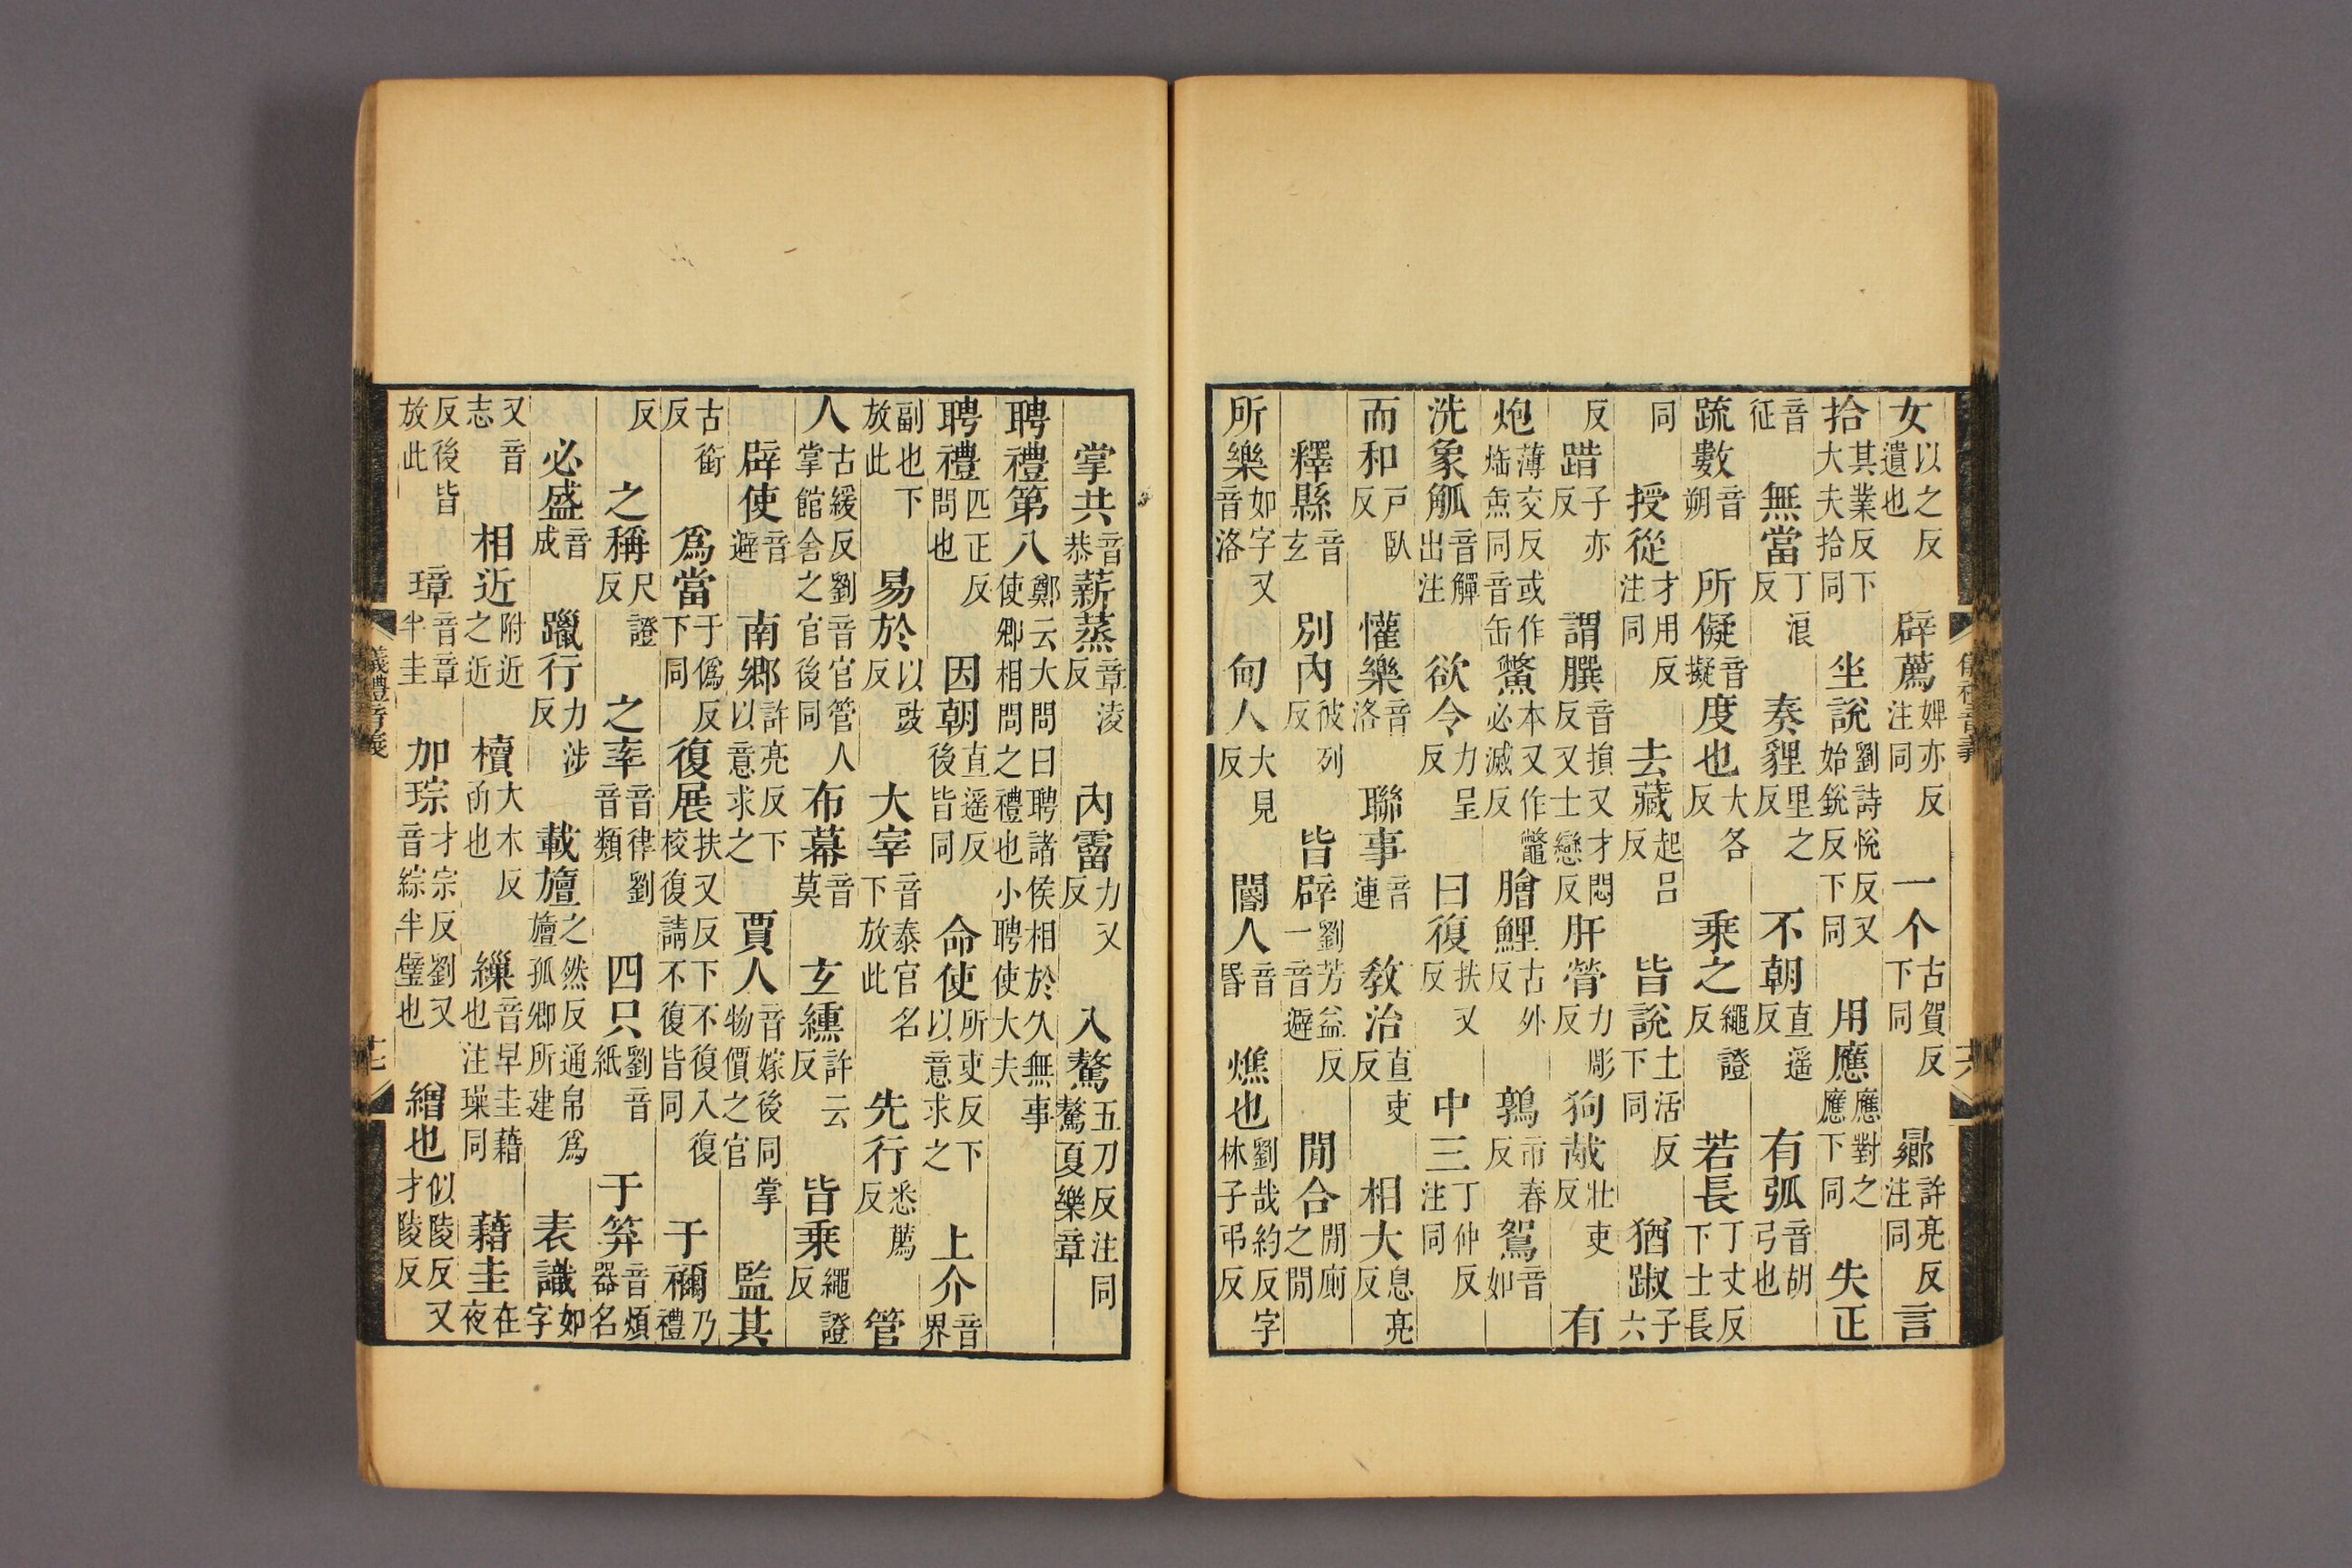 女以之反遺也 辟薦婢亦反注同 一个古賀反下同 曏許亮反注同 言
拾其業反下大夫拾同 坐說劉詩悅反又始銳反下同 用應應對之應下同 失正
音征 無當丁浪反 奏貍里之反 不朝直遥反 有弧音胡弓也
疏數音朔 所儗音擬 度也大各反 乘之繩證反 若長丁丈反下士長
同 授從才用反注同 去藏起呂反 皆說土活反下同 猶踧子六
反 踖子亦反 謂膞音損又才悶反又士戀反 肝膋力彫反 狗胾壯吏反 有
炮薄交反或作炰同音缶 鱉本又作鼈必滅反 膾鯉古外反 鶉市春反 鴽音如
洗象觚音觶出注 欲令力呈反 曰復扶又反 中三丁仲反注同
而和戸臥反 懽樂音洛 聯事音連 敎治直吏反 相大息亮反
釋縣音玄 別內彼列反 皆辟劉芳益反一音避 閒合閒廁之閒
所樂如字又音洛 甸人大見反 閽人音昏 燋也劉哉約反字林子弔反
掌共音恭 薪蒸章淩反 內霤力又反 入驁五刀反注同驁夏樂章
聘禮第八鄭云大問曰聘諸侯相於久無事使卿相問之禮也小聘使大夫
聘禮匹正反問也 因朝直遥反後皆同 命使所吏反下以意求之 上介音界
副也下放此 易於以豉反 大宰音泰官名下放此 先行悉薦反 管
人古緩反劉音官管人掌館舍之官後同 布幕音莫 玄纁許云反 皆乘繩證反
辟使音避 南鄉許亮反下以意求之 賈人音嫁後同掌物價之官 監其
古銜反 爲當于僞反下同 復展扶又反下不復入復校復請不復皆同 于禰乃禮
反 之稱尺證反 之率音律劉音類 四只劉音紙 于笲音煩器名
必盛音成 躐行力涉反 載旜之然反通帛爲旜孤卿所建 表識如字
又音志 相近附近之近 櫝大木反函也 繅音早圭藉也注璪同 藉圭在夜
反後皆放此 璋音章半圭 加琮才宗反劉又音綜半璧也 繒也似陵反又才陵反